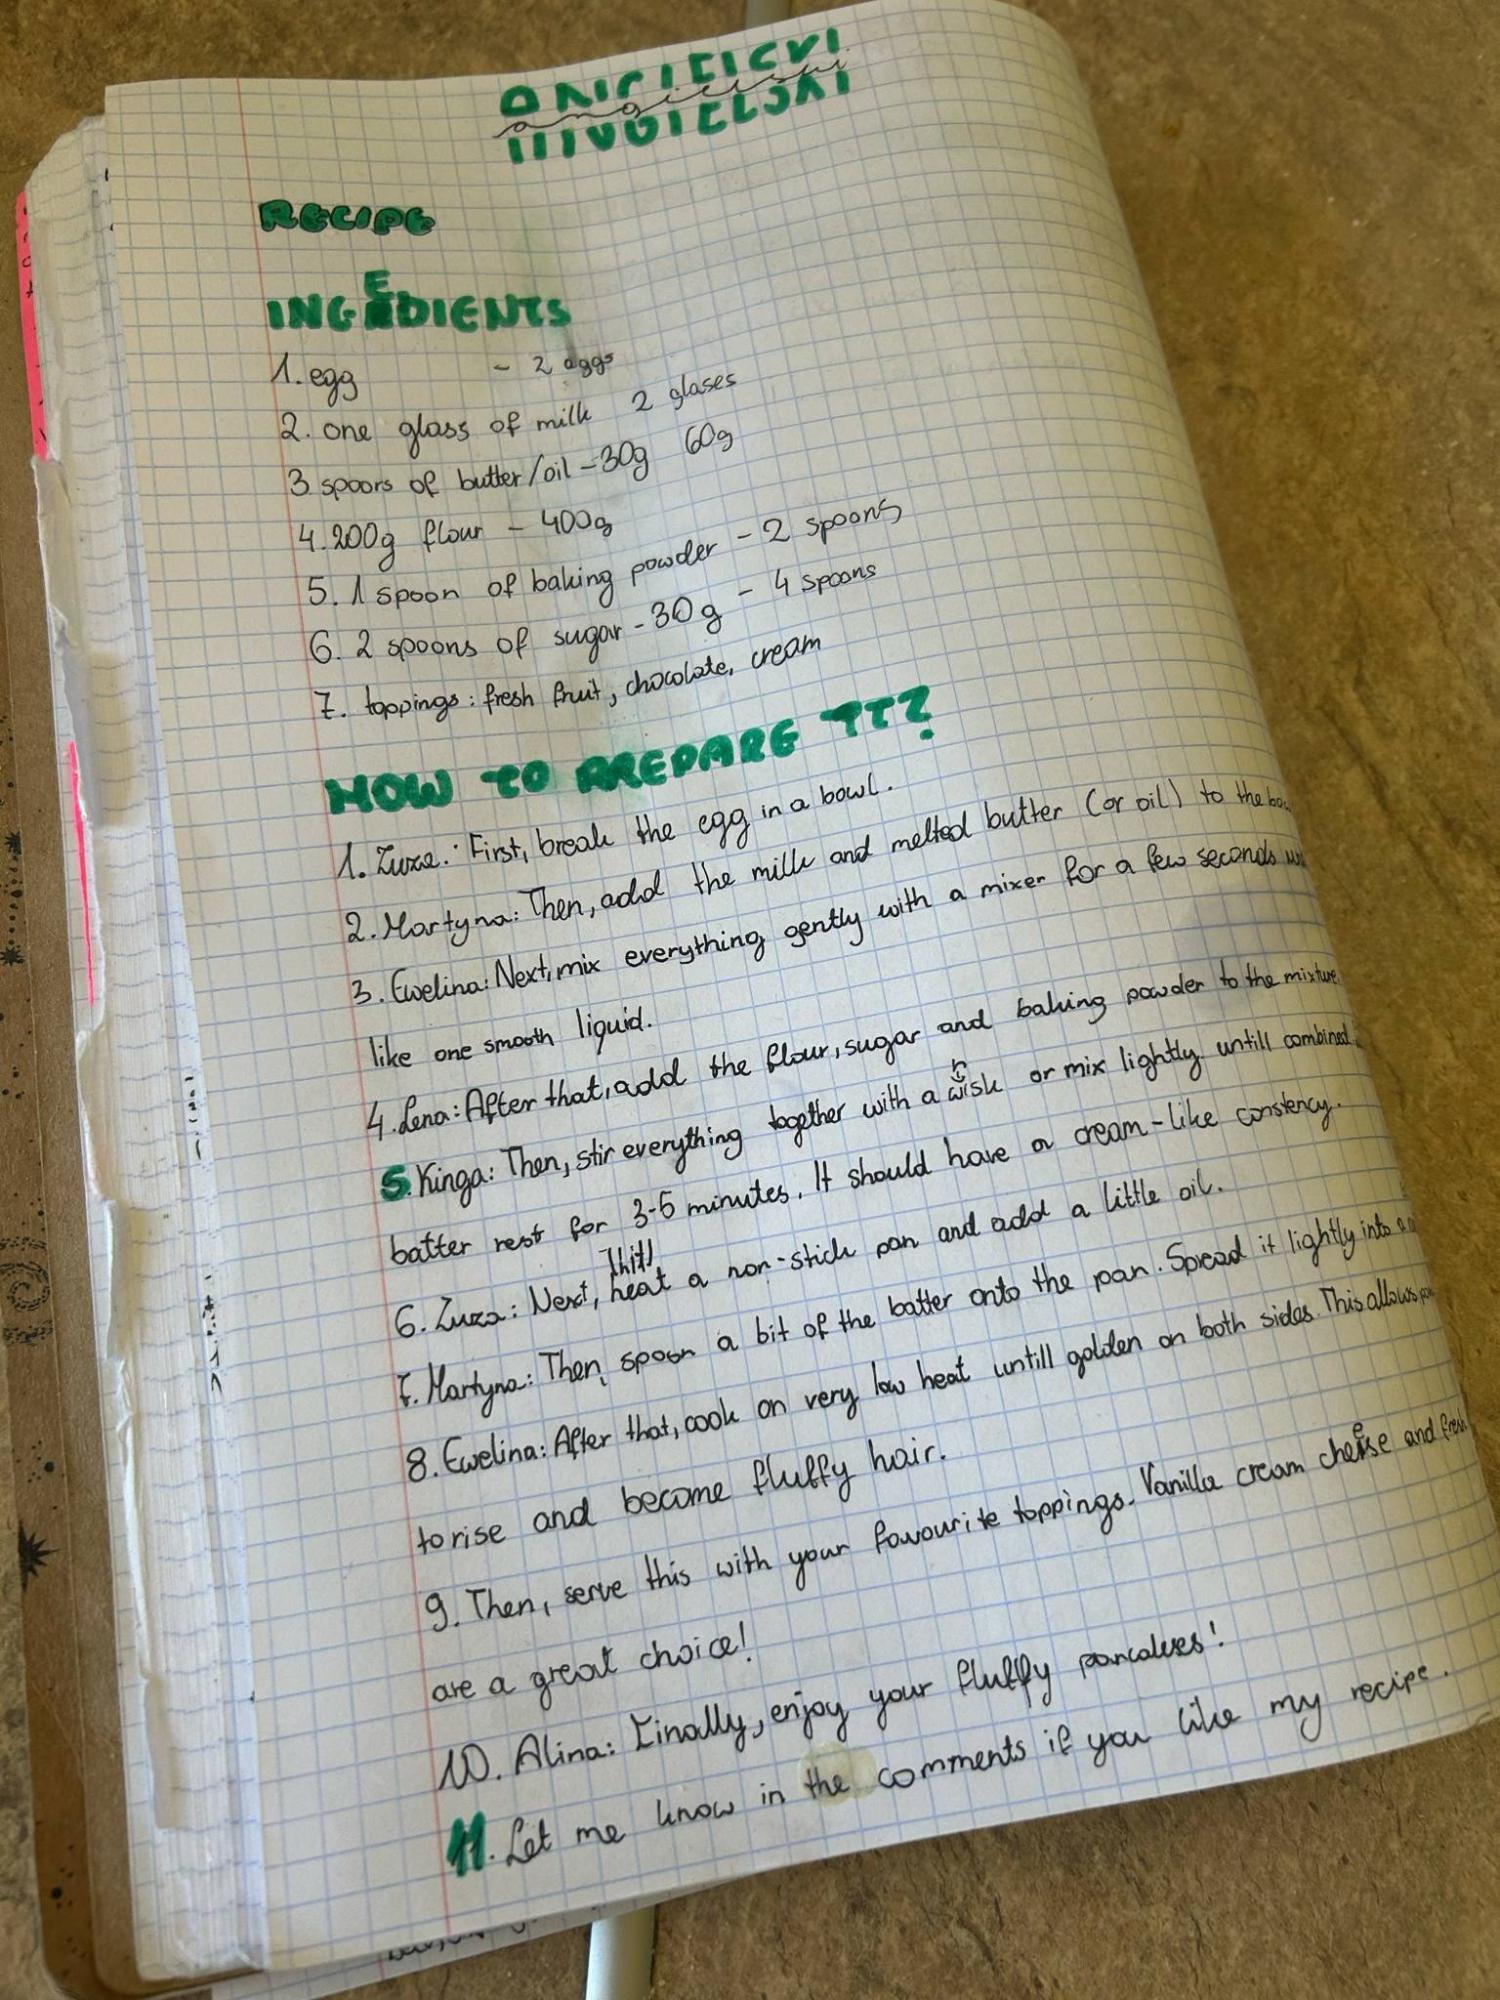 ANGIELSKI
angielski
RECIPE
INGEDIENTS
1. egg - 2 eggs
2. one glass of milk 2 glases
3 spoons of butter/oil - 30g 60g
4. 200g flour - 400g
5. 1 spoon of baking powder - 2 spoons
6. 2 spoons of sugar - 30g - 4 spoons
7. toppings: fresh fruit, chocolate, cream
HOW TO PREPARE IT?
1. Zuza: First, break the egg in a bowl.
2. Martyna: Then, add the milk and melted butter (or oil) to the
3. Ewelina: Next, mix everything gently with a mixer for a few seconds
like one smooth liquid.
4. Lena: After that, add the flour, sugar and baking powder to the mixture
5. Kinga: Then, stir everything together with a whisk or mix lightly untill combined
batter rest for 3-5 minutes. It should have a cream-like constency.
6. Zuza: Next, heat a non-stick pan and add a little oil.
7. Martyna: Then, spoon a bit of the batter onto the pan. Spread it lightly into a
8. Ewelina: After that, cook on very low heat untill golden on both sides. This allows
to rise and become fluffy hair.
9. Then, serve this with your favourite toppings. Vanilla cream cheese and fresh
are a great choice!
10. Alina: Finally, enjoy your fluffy pancakes!
11. Let me know in the comments if you like my recipe.